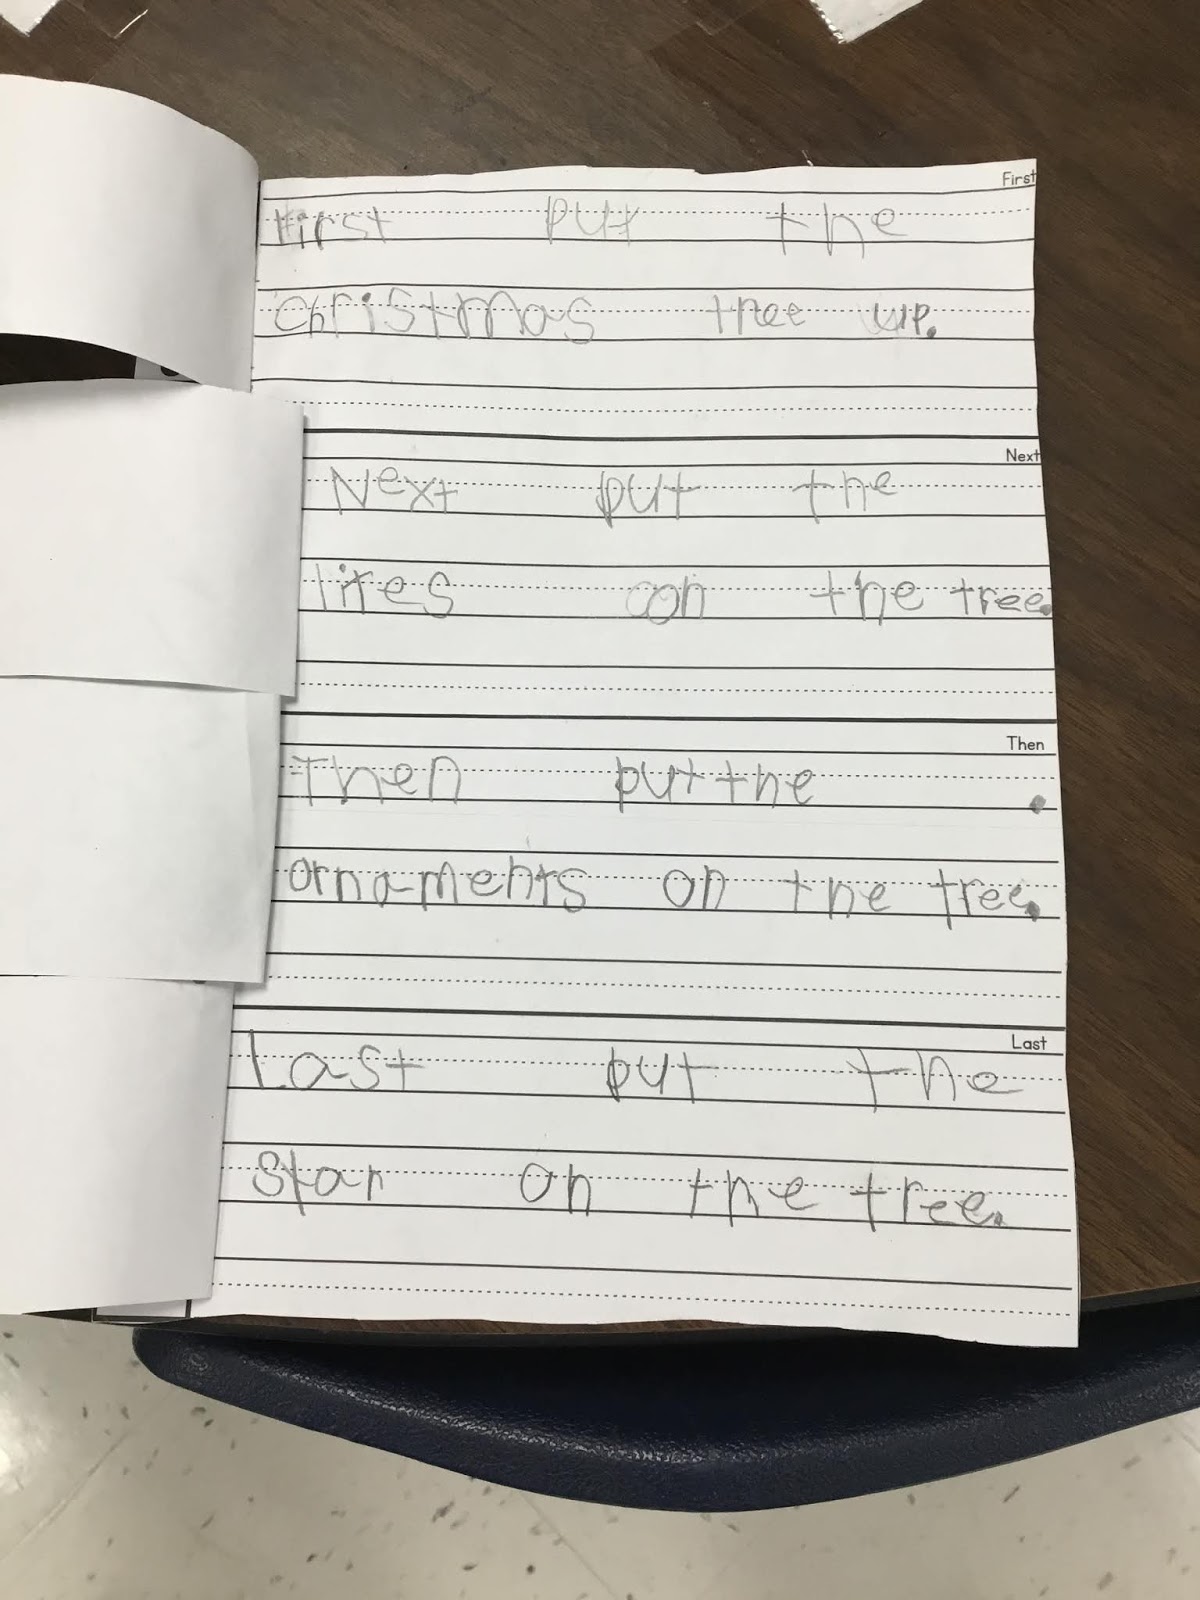 First
First put the
christmas tree up.
Next
Next put the
lites on the tree.
Then
Then put the .
ornaments on the tree.
Last
Last put the
Star on the tree.